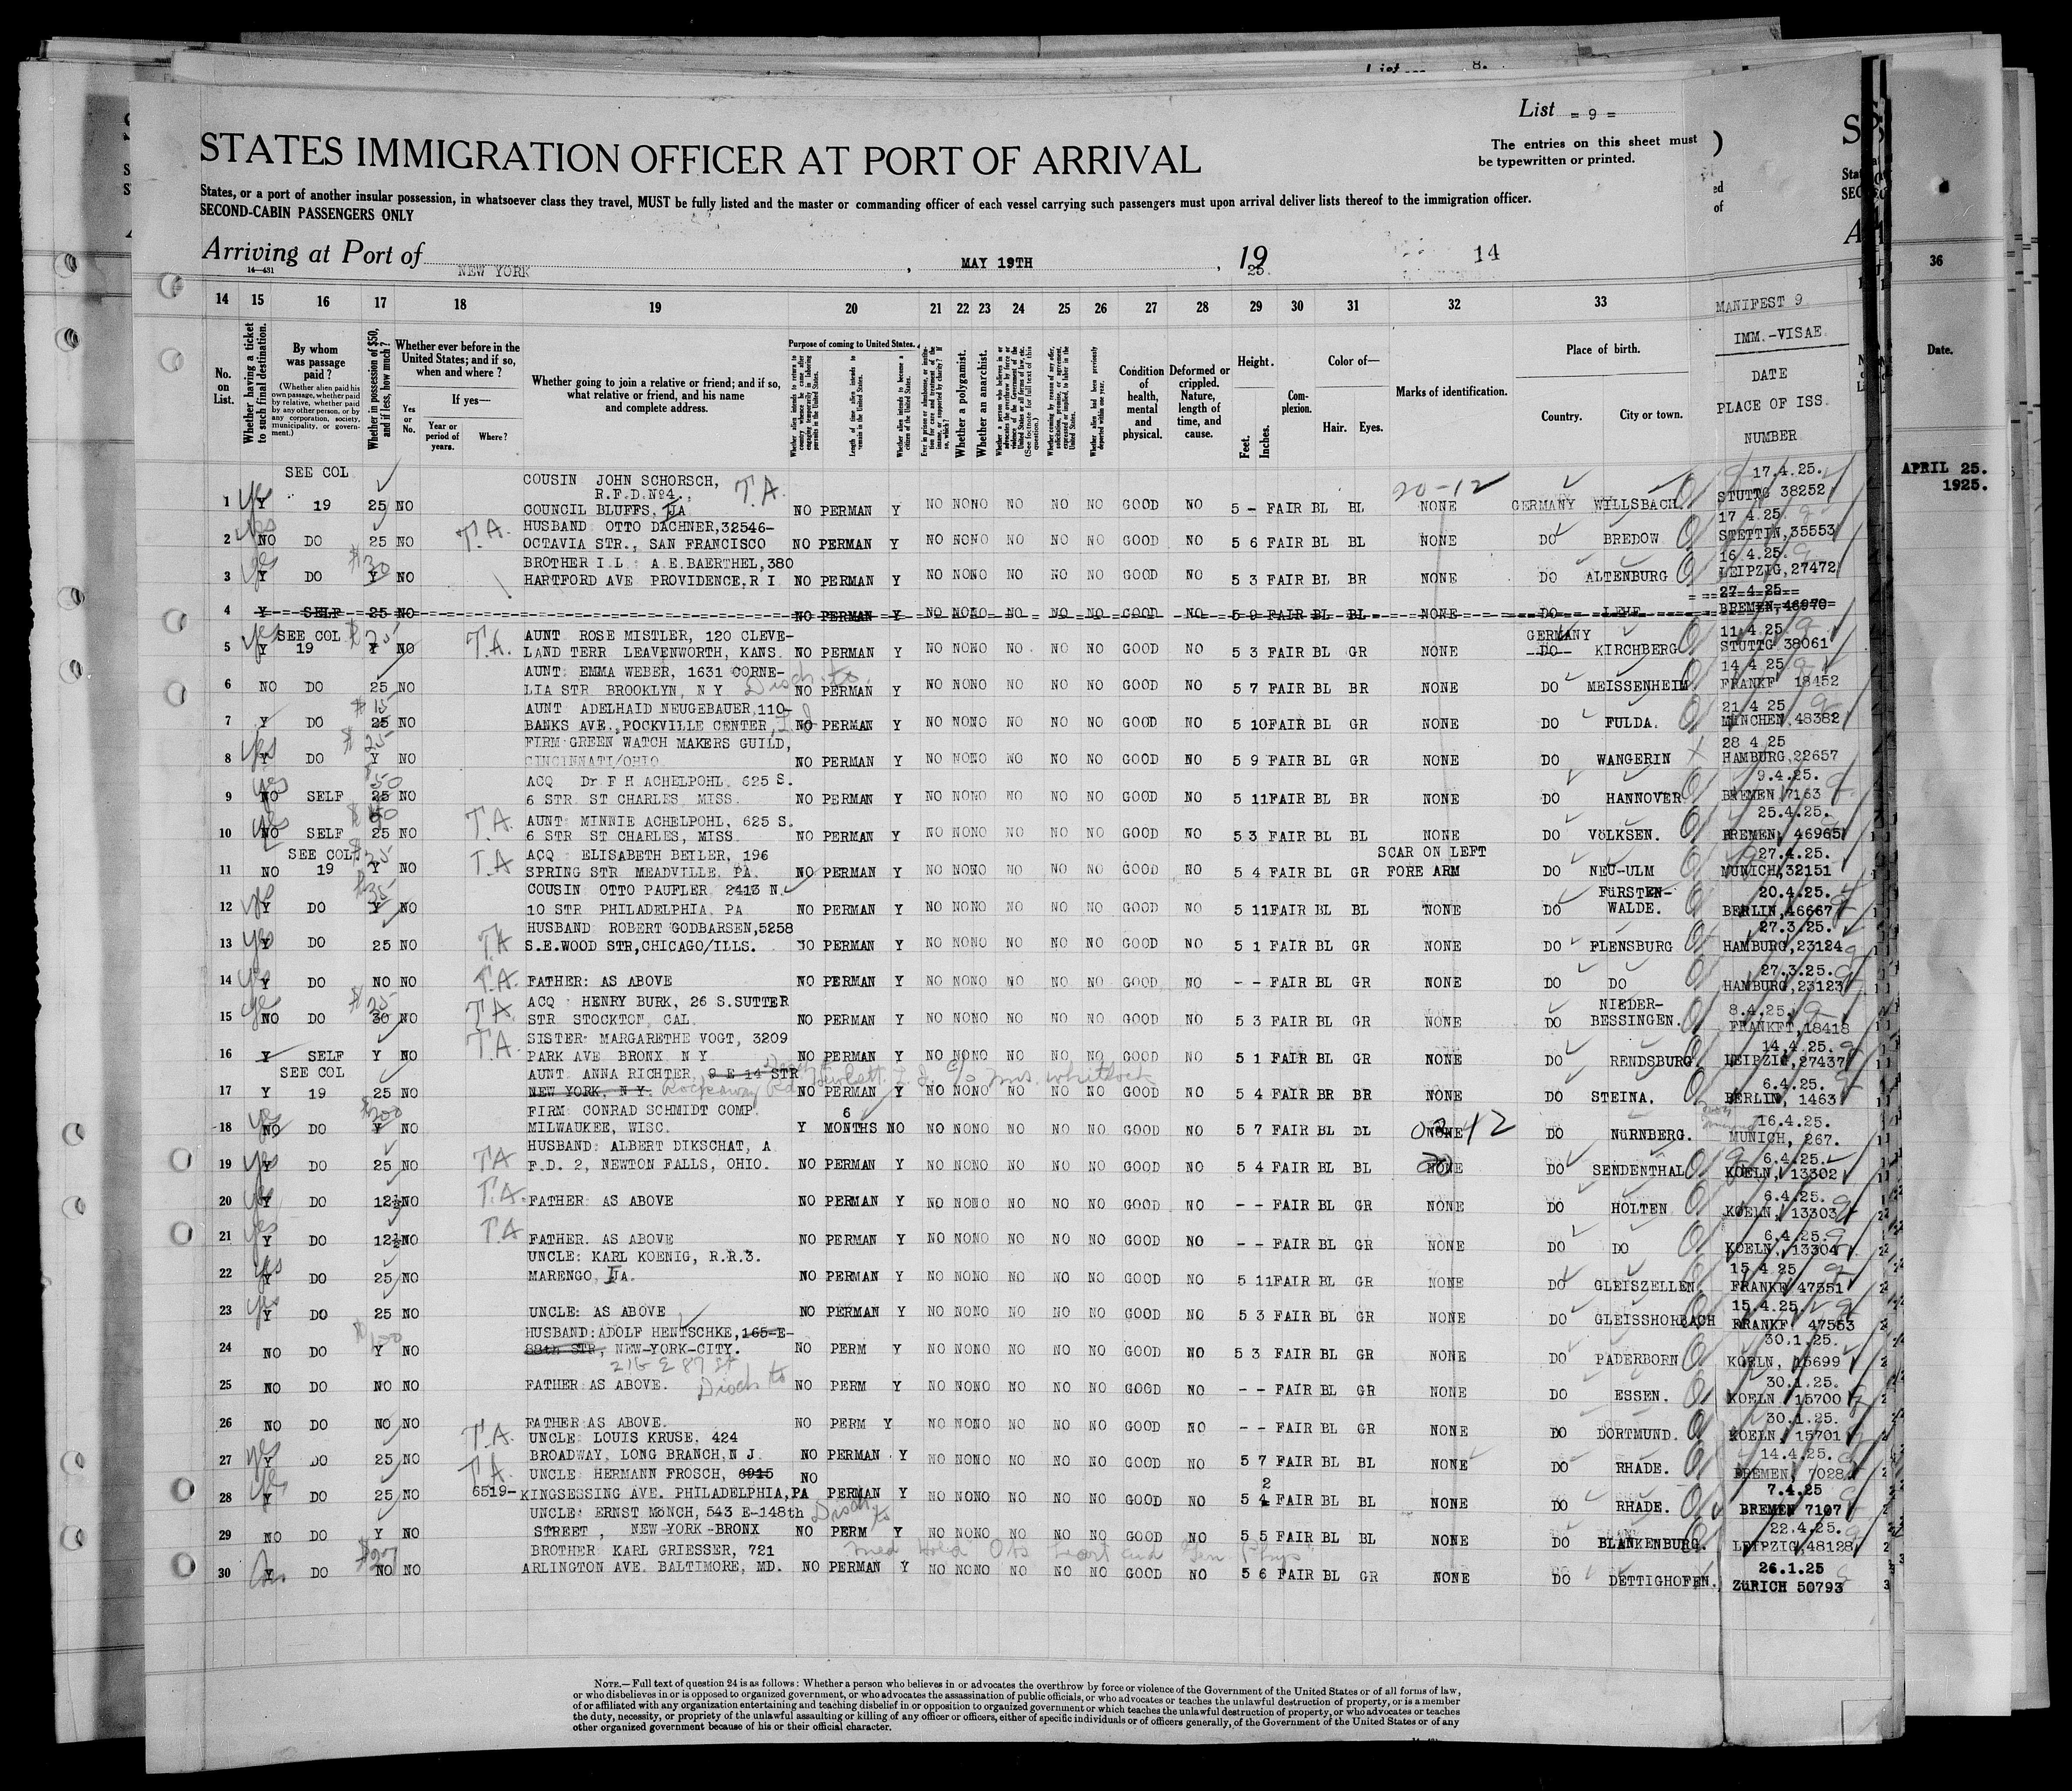 List = 9 =
The entries on this sheet must
be typewritten or printed.
STATES IMMIGRATION OFFICER AT PORT OF ARRIVAL
States, or a port of another insular possession, in whatsoever class they travel, MUST be fully listed and the master or commanding officer of each vessel carrying such passengers must upon arrival deliver lists thereof to the immigration officer.
SECOND-CABIN PASSENGERS ONLY
Arriving at Port of NEW YORK, MAY 19TH, 1925. 14
14—431
14 15 16 17 18 19 20 21 22 23 24 25 26 27 28 29 30 31 32 33 36
MANIFEST 9
IMM.-VISAE
DATE
PLACE OF ISS.
NUMBER
No. on List.
Whether having a ticket to such final destination.
By whom was passage paid?
(Whether alien paid his own passage, whether paid by relative, whether paid by any other person, or by any corporation, society, municipality, or government.)
Whether in possession of $50, and if less, how much?
Whether ever before in the United States; and if so, when and where?
Yes or No.
If yes—
Year or period of years.
Where?
Whether going to join a relative or friend; and if so, what relative or friend, and his name and complete address.
Purpose of coming to United States.
Length of time alien intends to remain in the United States.
Whether alien intends to become a citizen of the United States.
Whether a polygamist.
Whether an anarchist.
Condition of health, mental and physical.
Deformed or crippled. Nature, length of time, and cause.
Height.
Feet. Inches.
Complexion.
Color of—
Hair. Eyes.
Marks of identification.
Place of birth.
Country. City or town.
Date.
APRIL 25.
1925.
SEE COL COUSIN JOHN SCHORSCH, 17.4.25.
R.F.D.Nº4., T.A. 20-12
1 Y 19 25 NO COUNCIL BLUFFS, IA NO PERMAN Y NO NO NO NO NO NO GOOD NO 5 - FAIR BL BL NONE GERMANY WILLSBACH. STUTTG 38252
HUSBAND OTTO DACHNER,32546- 17 4.25.
2 NO DO 25 NO T.A. OCTAVIA STR., SAN FRANCISCO NO PERMAN Y NO NO NO NO NO NO GOOD NO 5 6 FAIR BL BL NONE DO BREDOW STETTIN,35553
BROTHER I.L. A.E.BAERTHEL,380 16 4.25.
3 Y DO $30 Y NO HARTFORD AVE PROVIDENCE,R I NO PERMAN Y NO NO NO NO NO NO GOOD NO 5 3 FAIR BL BR NONE DO ALTENBURG LEIPZIG,27472
27.4.25
4 Y SELF 25 NO NO PERMAN Y NO NO NO NO NO NO GOOD NO 5 9 FAIR BL BL NONE DO LEHE BREMEN,46970
SEE COL AUNT ROSE MISTLER, 120 CLEVE- GERMANY 11 4 25.
5 Y 19 Y NO T.A. LAND TERR LEAVENWORTH, KANS. NO PERMAN Y NO NO NO NO NO NO GOOD NO 5 3 FAIR BL GR NONE DO KIRCHBERG STUTTG 38061
AUNT: EMMA WEBER, 1631 CORNE- 14 4 25
6 NO DO 25 NO LIA STR BROOKLYN, N Y Disch to. NO PERMAN Y NO NO NO NO NO NO GOOD NO 5 7 FAIR BL BR NONE DO MEISSENHEIM FRANKF 18452
AUNT ADELHAID NEUGEBAUER,110- 21 4 25
7 Y DO $15 25 NO BANKS AVE.,POCKVILLE CENTER, NO PERMAN Y NO NO NO NO NO NO GOOD NO 5 10 FAIR BL GR NONE DO FULDA. MÜNCHEN,48382
FIRM GREEN WATCH MAKERS GUILD, 28 4 25
8 Y DO $25 Y NO CINCINNATI/OHIO. NO PERMAN Y NO NO NO NO NO NO GOOD NO 5 9 FAIR BL GR NONE DO WANGERIN HAMBURG,22657
ACQ Dr F H ACHELPOHL, 625 S. 9.4.25.
9 NO SELF 25 NO 6 STR ST CHARLES, MISS. NO PERMAN Y NO NO NO NO NO NO GOOD NO 5 11 FAIR BL BR NONE DO HANNOVER BREMEN 7163
AUNT MINNIE ACHELPOHL, 625 S. 25.4.25.
10 NO SELF 25 NO T.A. 6 STR ST CHARLES, MISS. NO PERMAN Y NO NO NO NO NO NO GOOD NO 5 3 FAIR BL BL NONE DO VÖLKSEN. BREMEN, 46965
SEE COL. ACQ ELISABETH BEILER, 196 SCAR ON LEFT 27.4.25.
11 NO 19 Y NO T.A SPRING STR MEADVILLE, PA. NO PERMAN Y NO NO NO NO NO NO GOOD NO 5 4 FAIR BL GR FORE ARM DO NEU-ULM MUNICH,32151
COUSIN OTTO PAUFLER 2413 N. FÜRSTEN- 20.4.25.
12 Y DO Y NO 10 STR PHILADELPHIA, PA NO PERMAN Y NO NO NO NO NO NO GOOD NO 5 11 FAIR BL BL NONE DO WALDE. BERLIN,46667
HUSBAND ROBERT GODBARSEN,5258 27.3.25.
13 Y DO 25 NO T.A S.E.WOOD STR,CHICAGO/ILLS. NO PERMAN Y NO NO NO NO NO NO GOOD NO 5 1 FAIR BL GR NONE DO FLENSBURG HAMBURG,23124
27.3.25.
14 Y DO NO NO T.A. FATHER: AS ABOVE NO PERMAN Y NO NO NO NO NO NO GOOD NO - - FAIR BL GR NONE DO DO HAMBURG,23123
ACQ HENRY BURK, 26 S.SUTTER NIEDER- 8.4.25.
15 NO DO $25 30 NO T.A. STR STOCKTON, CAL. NO PERMAN Y NO NO NO NO NO NO GOOD NO 5 3 FAIR BL GR NONE DO BESSINGEN. FRANKFT,18418
SISTER: MARGARETHE VOGT, 3209 14.4.25.
16 Y SELF Y NO T.A. PARK AVE BRONX N Y NO PERMAN Y NO NO NO NO NO NO GOOD NO 5 1 FAIR BL GR NONE DO RENDSBURG LEIPZIG,27437
SEE COL AUNT ANNA RICHTER, 9 E 14 STR Hewlett L.I. c/o Mrs. Whitlock 6.4.25.
17 Y 19 25 NO NEW YORK, N Y. Rockaway Rd NO PERMAN Y NO NO NO NO NO NO GOOD NO 5 4 FAIR BR BR NONE DO STEINA. BERLIN, 1463
FIRM CONRAD SCHMIDT COMP. 6 16.4.25.
18 NO DO $200 Y NO MILWAUKEE, WISC. Y MONTHS NO NO NO NO NO NO NO GOOD NO 5 7 FAIR BL DL NONE DO NÜRNBERG. MUNICH, 267.
HUSBAND: ALBERT DIKSCHAT, A 6.4.25.
19 Y DO 25 NO TA F.D. 2, NEWTON FALLS, OHIO. NO PERMAN Y NO NO NO NO NO NO GOOD NO 5 4 FAIR BL BL NONE DO SENDENTHAL KOELN, 13302
6.4.25.
20 Y DO 12½ NO T.A. FATHER: AS ABOVE NO PERMAN Y NO NO NO NO NO NO GOOD NO - - FAIR BL GR NONE DO HOLTEN KOELN, 13303
6.4.25.
21 Y DO 12½ NO T.A FATHER. AS ABOVE NO PERMAN Y NO NO NO NO NO NO GOOD NO - - FAIR BL GR NONE DO DO KOELN, 13304
UNCLE: KARL KOENIG, R.R.3. 15 4 25
22 Y DO 25 NO MARENGO, IA. NO PERMAN Y NO NO NO NO NO NO GOOD NO 5 11 FAIR BL GR NONE DO GLEISZELLEN FRANKF 47551
15.4.25.
23 Y DO 25 NO UNCLE: AS ABOVE NO PERMAN Y NO NO NO NO NO NO GOOD NO 5 3 FAIR BL GR NONE DO GLEISSHORBACH FRANKF 47553
HUSBAND:ADOLF HENTSCHKE,165-E- 30.1.25.
24 NO DO $100 Y NO 88th STR, NEW-YORK-CITY. NO PERM Y NO NO NO NO NO NO GOOD NO 5 3 FAIR BL GR NONE DO PADERBORN KOELN, 15699
216 E 87 St 30.1.25.
25 NO DO NO NO FATHER AS ABOVE. Disch to NO PERM Y NO NO NO NO NO NO GOOD NO - - FAIR BL GR NONE DO ESSEN. KOELN 15700
30.1.25.
26 NO DO NO NO FATHER AS ABOVE. NO PERM Y NO NO NO NO NO NO GOOD NO - - FAIR BL GR NONE DO DORTMUND. KOELN, 15701
T.A. UNCLE LOUIS KRUSE, 424 14.4.25.
27 Y DO 25 NO BROADWAY, LONG BRANCH,N J. NO PERMAN Y NO NO NO NO NO NO GOOD NO 5 7 FAIR BL BL NONE DO RHADE. BREMEN, 7028
T.A. UNCLE HERMANN FROSCH, 6915 NO 2 7.4.25
28 Y DO 25 NO 6519- KINGSESSING AVE. PHILADELPHIA,PA PERMAN Y NO NO NO NO NO NO GOOD NO 5 4 FAIR BL BL NONE DO RHADE. BREMEN 7107
UNCLE ERNST MÖNCH, 543 E-148th Disch to 22.4.25.
29 NO DO Y NO STREET , NEW-YORK-BRONX NO PERM Y NO NO NO NO NO NO GOOD NO 5 5 FAIR BL BL NONE DO BLANKENBURG. LEIPZIG,48128
BROTHER KARL GRIESSER, 721 26.1.25
30 Y DO NO NO ARLINGTON AVE. BALTIMORE, MD. NO PERMAN Y NO NO NO NO NO NO GOOD NO 5 6 FAIR BL GR NONE DO DETTIGHOFEN. ZÜRICH 50793
NOTE.—Full text of question 24 is as follows: Whether a person who believes in or advocates the overthrow by force or violence of the Government of the United States or of all forms of law,
or who disbelieves in or is opposed to organized government, or who advocates the assassination of public officials, or who advocates or teaches the unlawful destruction of property, or is a member
of or affiliated with any organization entertaining and teaching disbelief in or opposition to organized government or which teaches the unlawful destruction of property, or who advocates or teaches
the duty, necessity, or propriety of the unlawful assaulting or killing of any officer or officers, either of specific individuals or of officers generally, of the Government of the United States or of any
other organized government because of his or their official character.